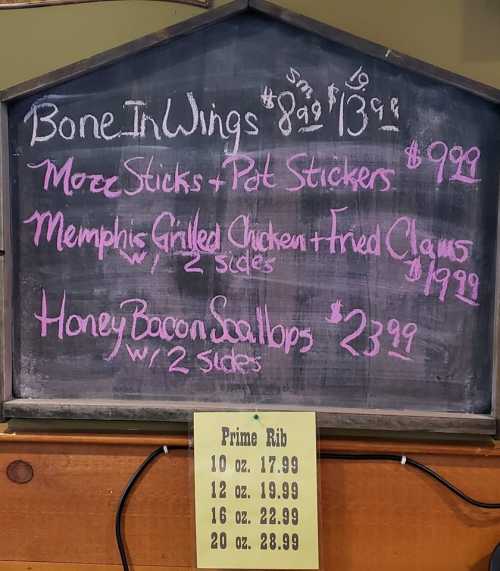 Bone In Wings sm $8.99 lg $13.99
Mozz Sticks + Pot Stickers $9.99
Memphis Grilled Chicken + Fried Clams
w/ 2 sides $19.99
Honey Bacon Scallops $23.99
w/ 2 sides
Prime Rib
10 oz. 17.99
12 oz. 19.99
16 oz. 22.99
20 oz. 28.99